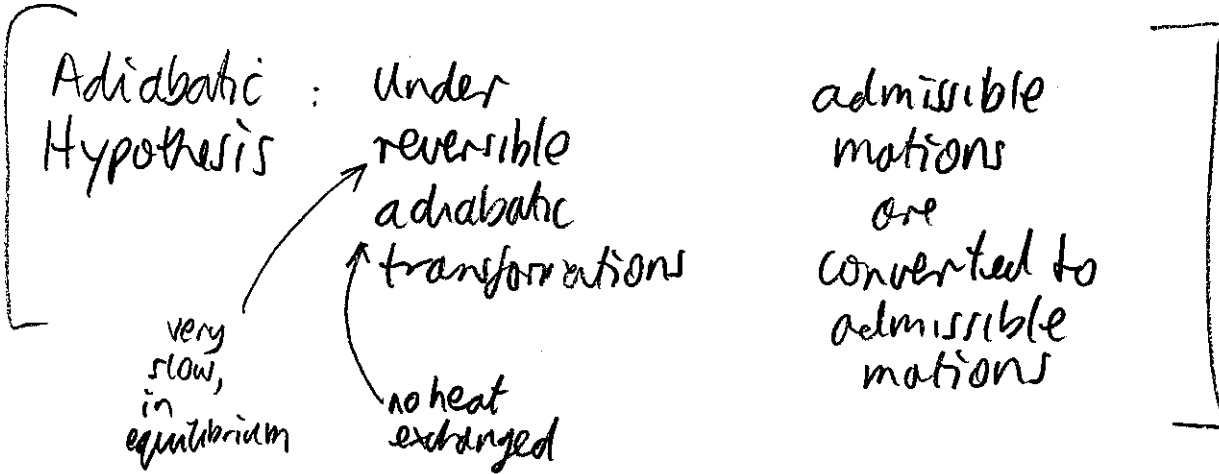 Adiabatic :
Hypothesis
Under
reversible
adiabatic
transformations
admissible
motions
are
converted to
admissible
motions
very
slow,
in
equilibrium
no heat
exchanged